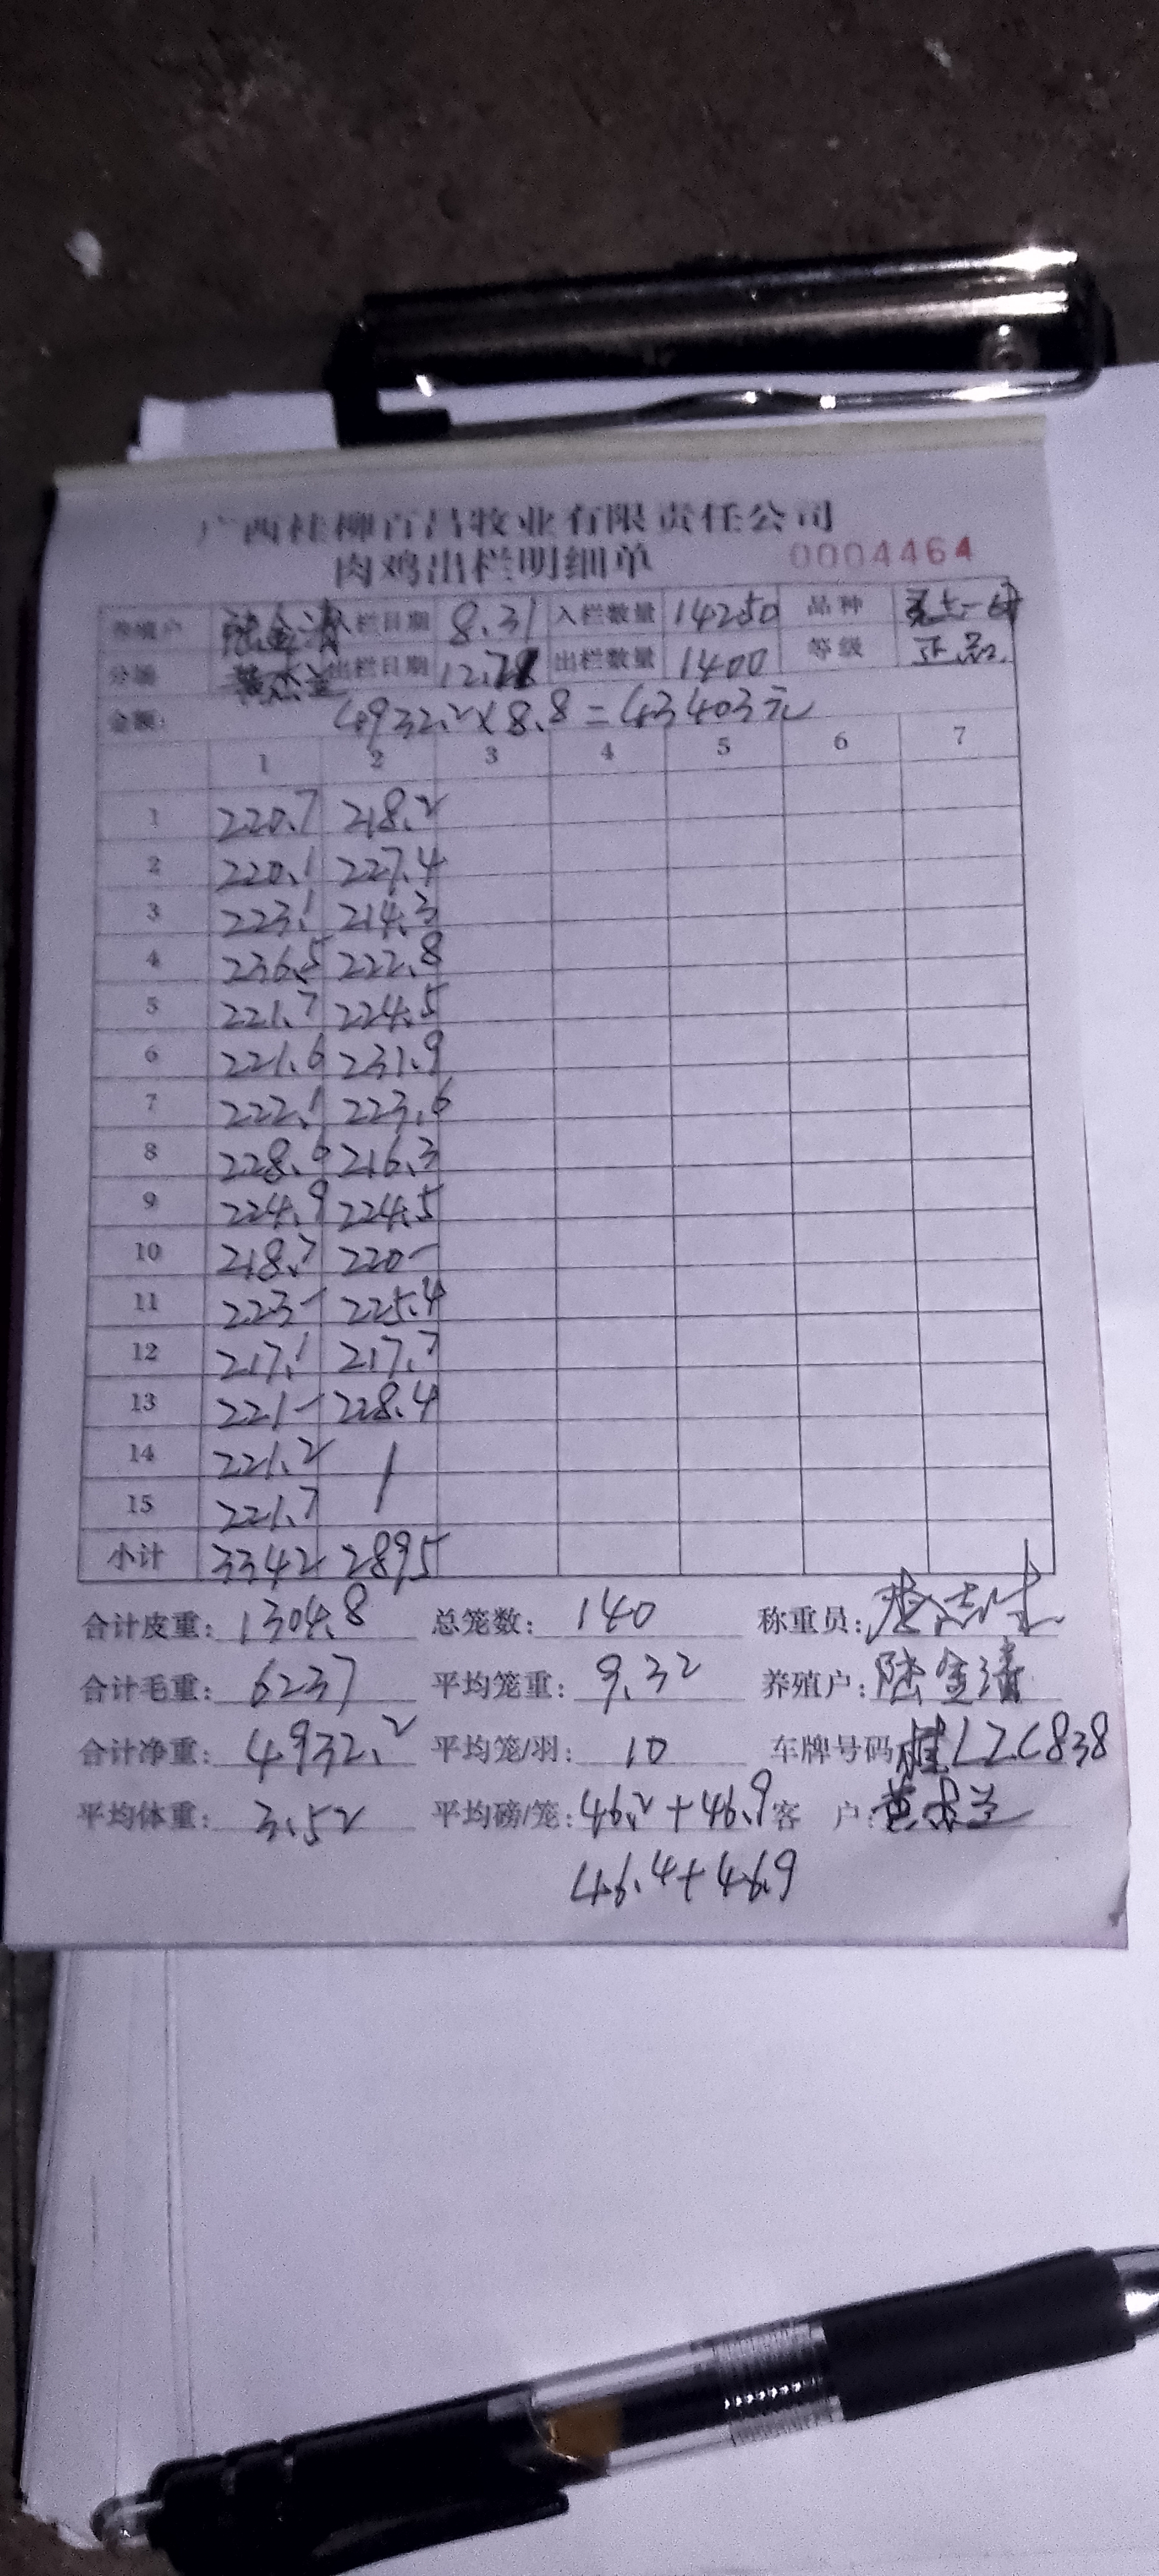 广西桂柳百昌牧业有限责任公司
肉鸡出栏明细单 0004464
养殖户 陆金清 入栏日期 8.31 入栏数量 14250 品种
分场 出栏日期 12.28 出栏数量 1400 等级 正品
金额: 4932.2×8.8=43403元
1 2 3 4 5 6 7
1 220.7 218.2
2 220.1 227.4
3 223.1 214.3
4 236.5 222.8
5 221.7 224.5
6 221.6 231.9
7 222.1 223.6
8 228.6 216.3
9 224.9 224.5
10 218.7 220-
11 223- 225.4
12 217.1 217.7
13 221- 228.4
14 221.2 /
15 221.7
小计 3342 2895
合计皮重: 1304.8 总笼数: 140 称重员:
合计毛重: 6237 平均笼重: 9.32 养殖户: 陆金清
合计净重: 4932.2 平均笼/羽: 10 车牌号码 桂LZC838
平均体重: 3.52 平均磅/笼: 46.2+46.9 客 户:
46.4+46.9